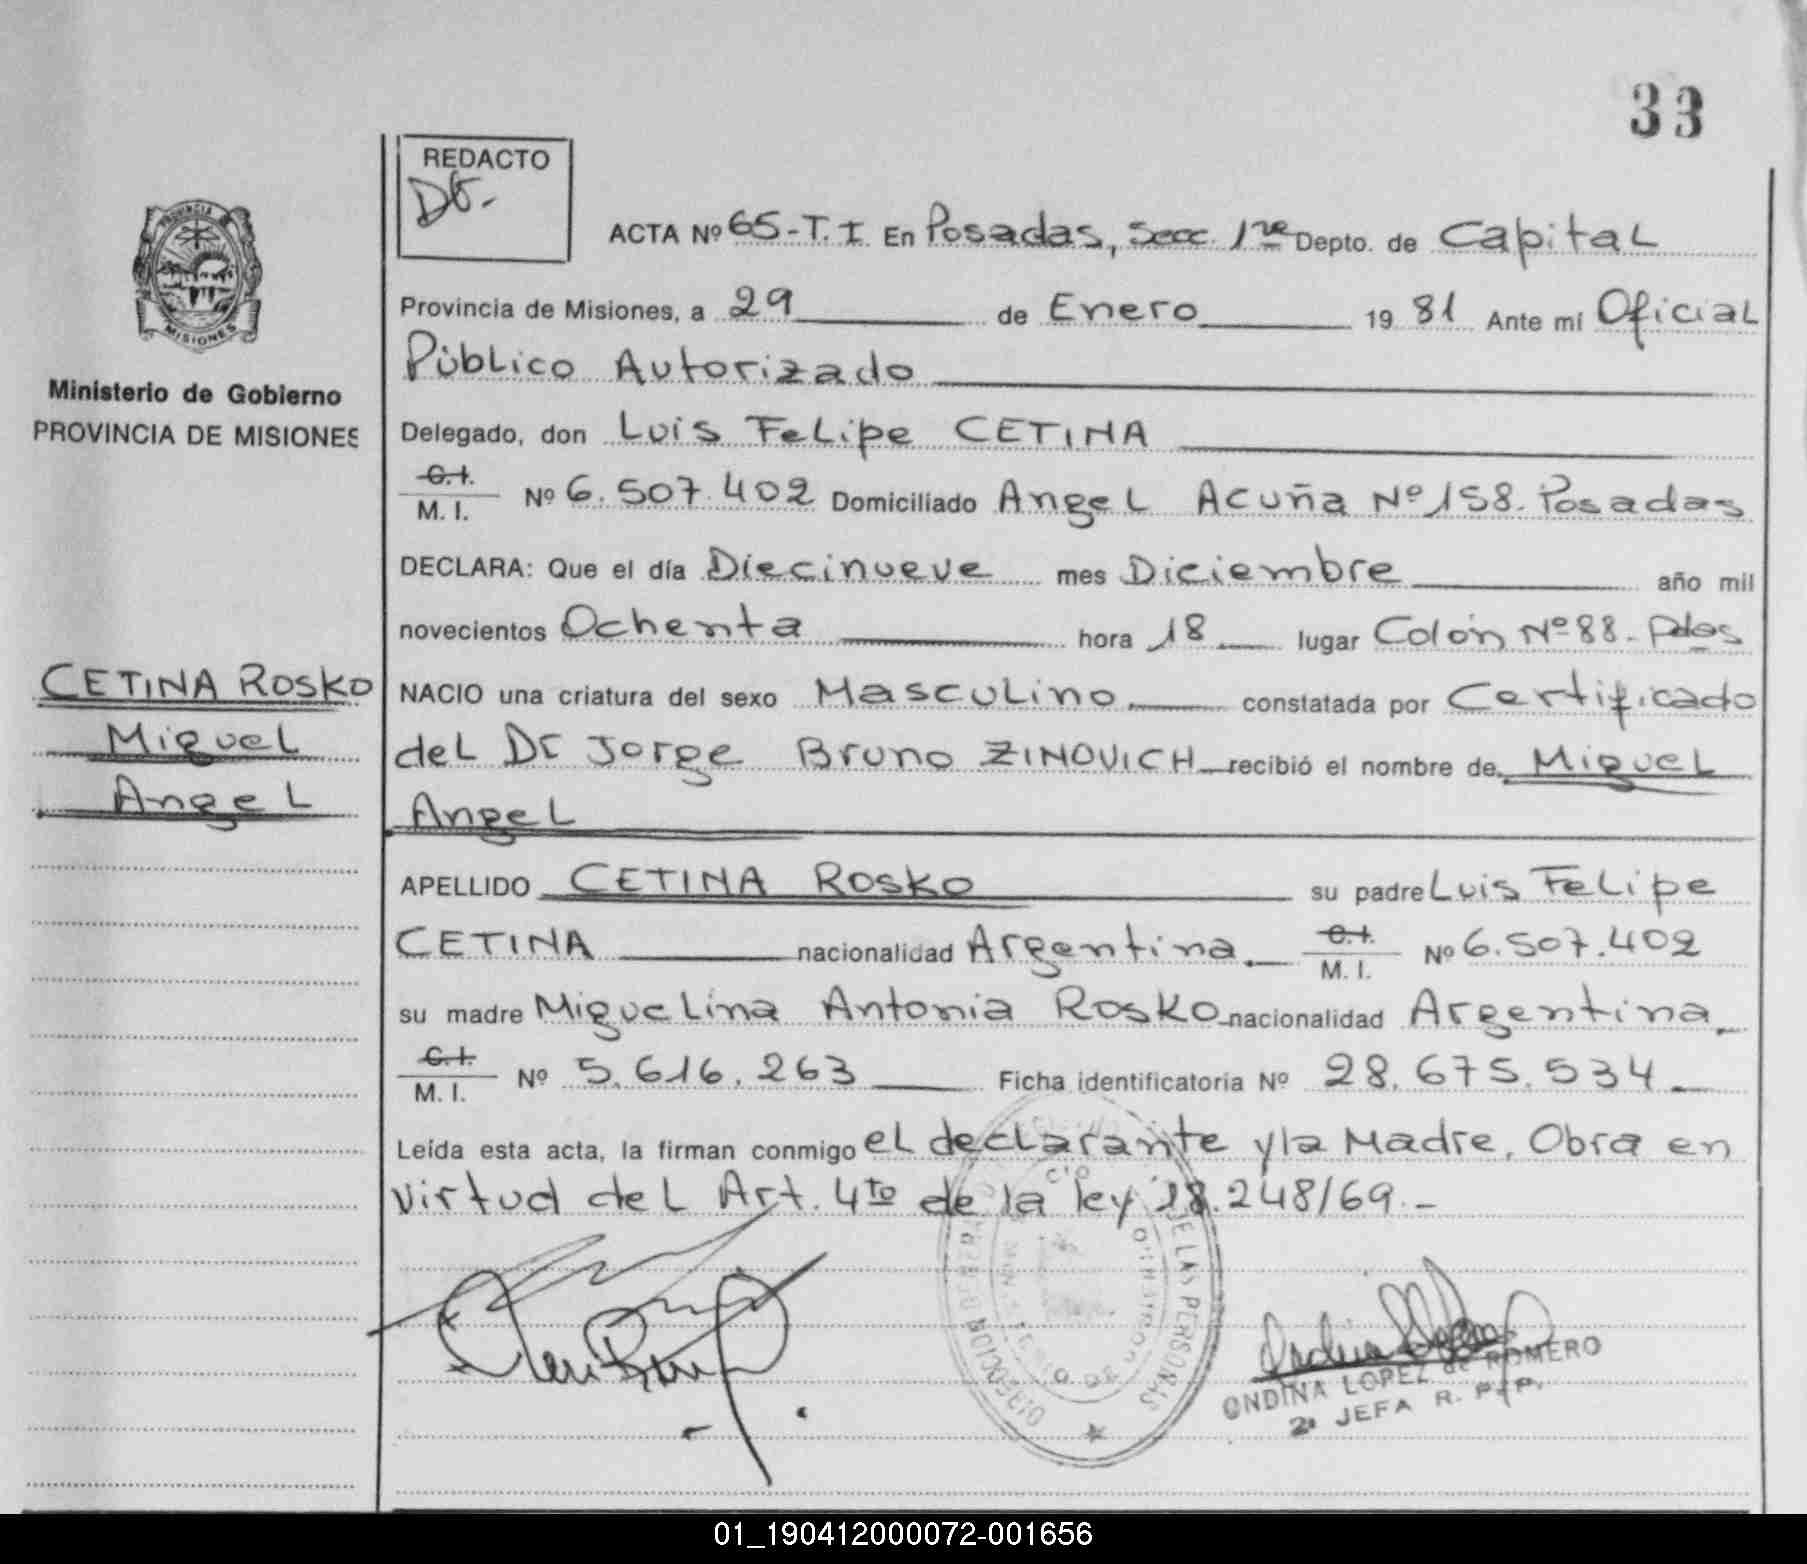 33
REDACTO
ACTA Nº 65-T. I. En Posadas, Secc. 1ra Depto. de Capital
Provincia de Misiones, a 29 de Enero 1981 Ante mí Oficial
Público Autorizado
Delegado, don Luis Felipe CETINA
C.I. M. I. Nº 6.507.402 Domiciliado Angel Acuña Nº 158. Posadas
DECLARA: Que el día Diecinueve mes Diciembre año mil
novecientos Ochenta hora 18 lugar Colón Nº 88 - Pdas
NACIO una criatura del sexo Masculino constatada por Certificado
del Dr Jorge Bruno ZINOVICH recibió el nombre de Miguel
Angel
APELLIDO CETINA ROSKO su padre Luis Felipe
CETINA nacionalidad Argentina. C.I. M. I. Nº 6.507.402
su madre Miguelina Antonia ROSKO nacionalidad Argentina
C.I. M. I. Nº 5.616.263 Ficha identificatoria Nº 28.675.534
Leída esta acta, la firman conmigo el declarante y la Madre, Obra en
virtud del Art. 4to de la ley 18.248/69.-
PROVINCIA
MISIONES
Ministerio de Gobierno
PROVINCIA DE MISIONES
CETINA ROSKO
Miguel
Angel
DE LAS PERSONAS
ONDINA LOPEZ de ROMERO
2ª JEFA R. P. P.
01_190412000072-001656